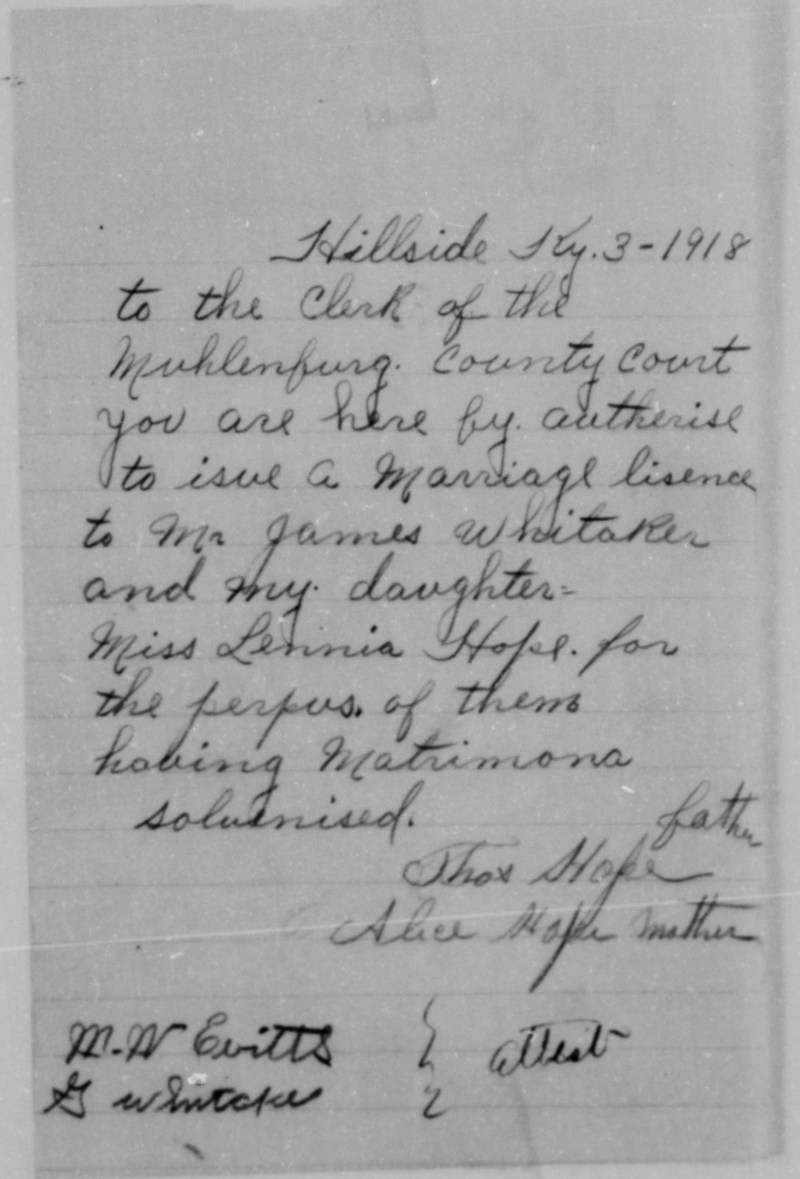 Hillside Ky. 3-1918
to the Clerk of the
Muhlenburg. County Court
you are here by. autherise
to isue a Marriage lisence
to Mr James Whitaker
and my. daughter=
Miss Lennia Hope. for
the perpus. of them
having Matrimona
solumnised.
father
Thos Hope
Alice Hope Mother
M. W Evitts } attest
G Whitaker